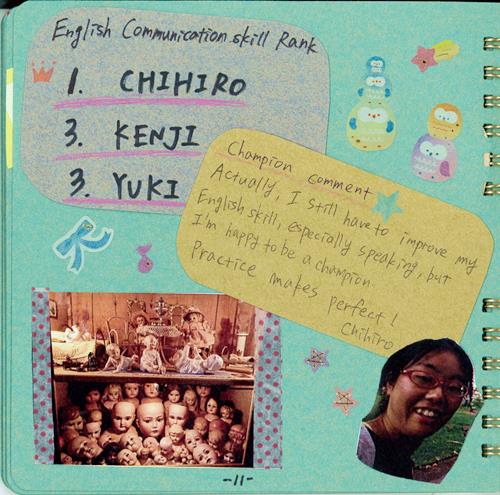 English Communication skill Rank
1. CHIHIRO
3. KENJI
3. YUKI
Champion comment
Actually, I still have to improve my
English skill, especially speaking, but
I'm happy to be a champion.
Practice makes perfect!
Chihiro
-11-